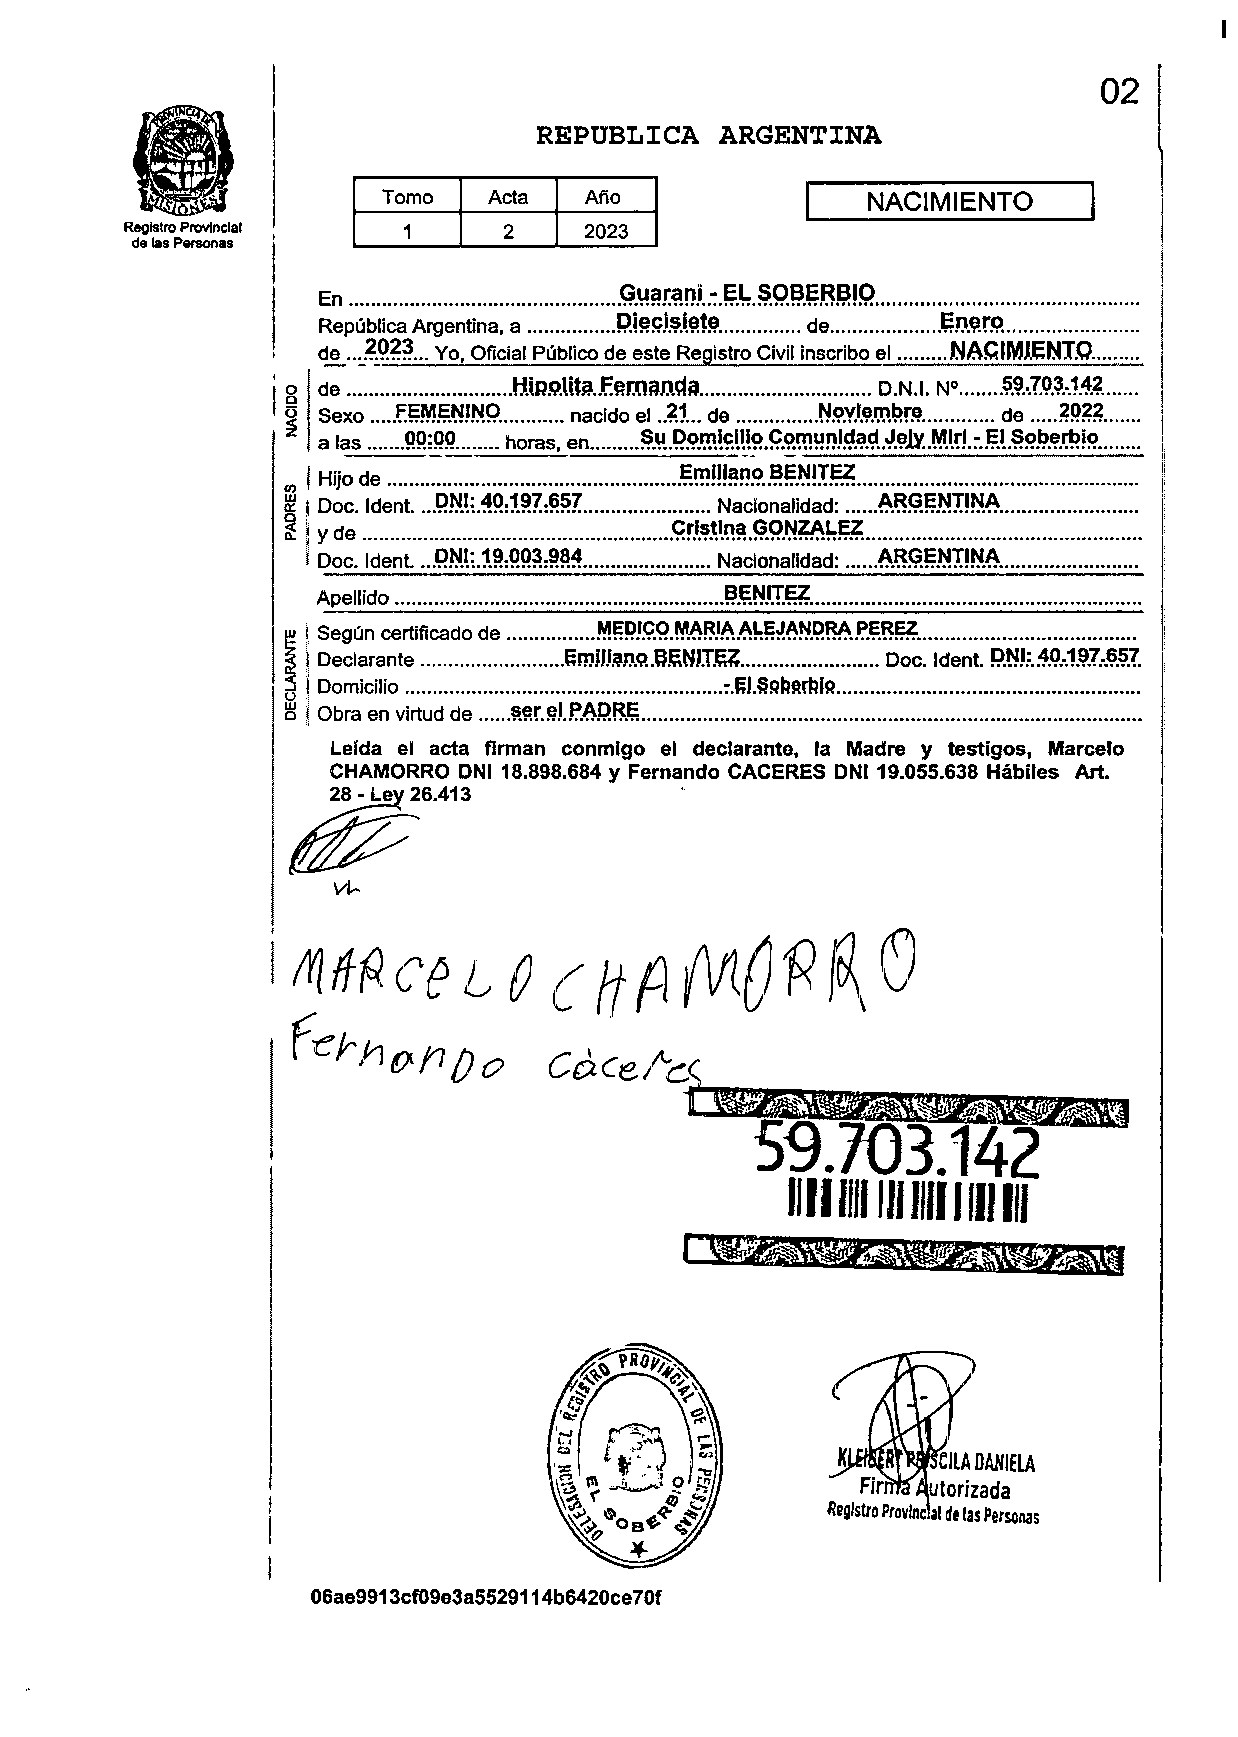 02
REPUBLICA ARGENTINA
PROVINCIA DE
MISIONES
Registro Provincial
de las Personas
Tomo Acta Año
1 2 2023
NACIMIENTO
En ........ Guarani - EL SOBERBIO ........
República Argentina, a ........ Diecisiete ........ de ........ Enero ........
de ... 2023 ... Yo, Oficial Público de este Registro Civil inscribo el ........ NACIMIENTO ........
NACIDO
de ........ Hipolita Fernanda ........ D.N.I. Nº ....... 59.703.142 ......
Sexo .... FEMENINO ........ nacido el .. 21 .. de ........ Noviembre ........ de ..... 2022 ......
a las ...... 00:00 ....... horas, en ........ Su Domicilio Comunidad Jejy Miri - El Soberbio .......
PADRES
Hijo de ........ Emiliano BENITEZ ........
Doc. Ident. ... DNI: 40.197.657 ........ Nacionalidad: ...... ARGENTINA ........
y de ........ Cristina GONZALEZ ........
Doc. Ident. ... DNI: 19.003.984 ........ Nacionalidad: ...... ARGENTINA ........
Apellido ........ BENITEZ ........
DECLARANTE
Según certificado de ........ MEDICO MARIA ALEJANDRA PEREZ ........
Declarante ........ Emiliano BENITEZ ........ Doc. Ident. DNI: 40.197.657
Domicilio ........ - El Soberbio ........
Obra en virtud de ..... ser el PADRE ........
Leída el acta firman conmigo el declarante, la Madre y testigos, Marcelo
CHAMORRO DNI 18.898.684 y Fernando CACERES DNI 19.055.638 Hábiles Art.
28 - Ley 26.413
MARCELO CHAMORRO
Fernando Càceres
59.703.142
DELEGACION DEL REGISTRO PROVINCIAL DE LAS PERSONAS
EL SOBERBIO
KLEIBERT PRISCILA DANIELA
Firma Autorizada
Registro Provincial de las Personas
06ae9913cf09e3a5529114b6420ce70f